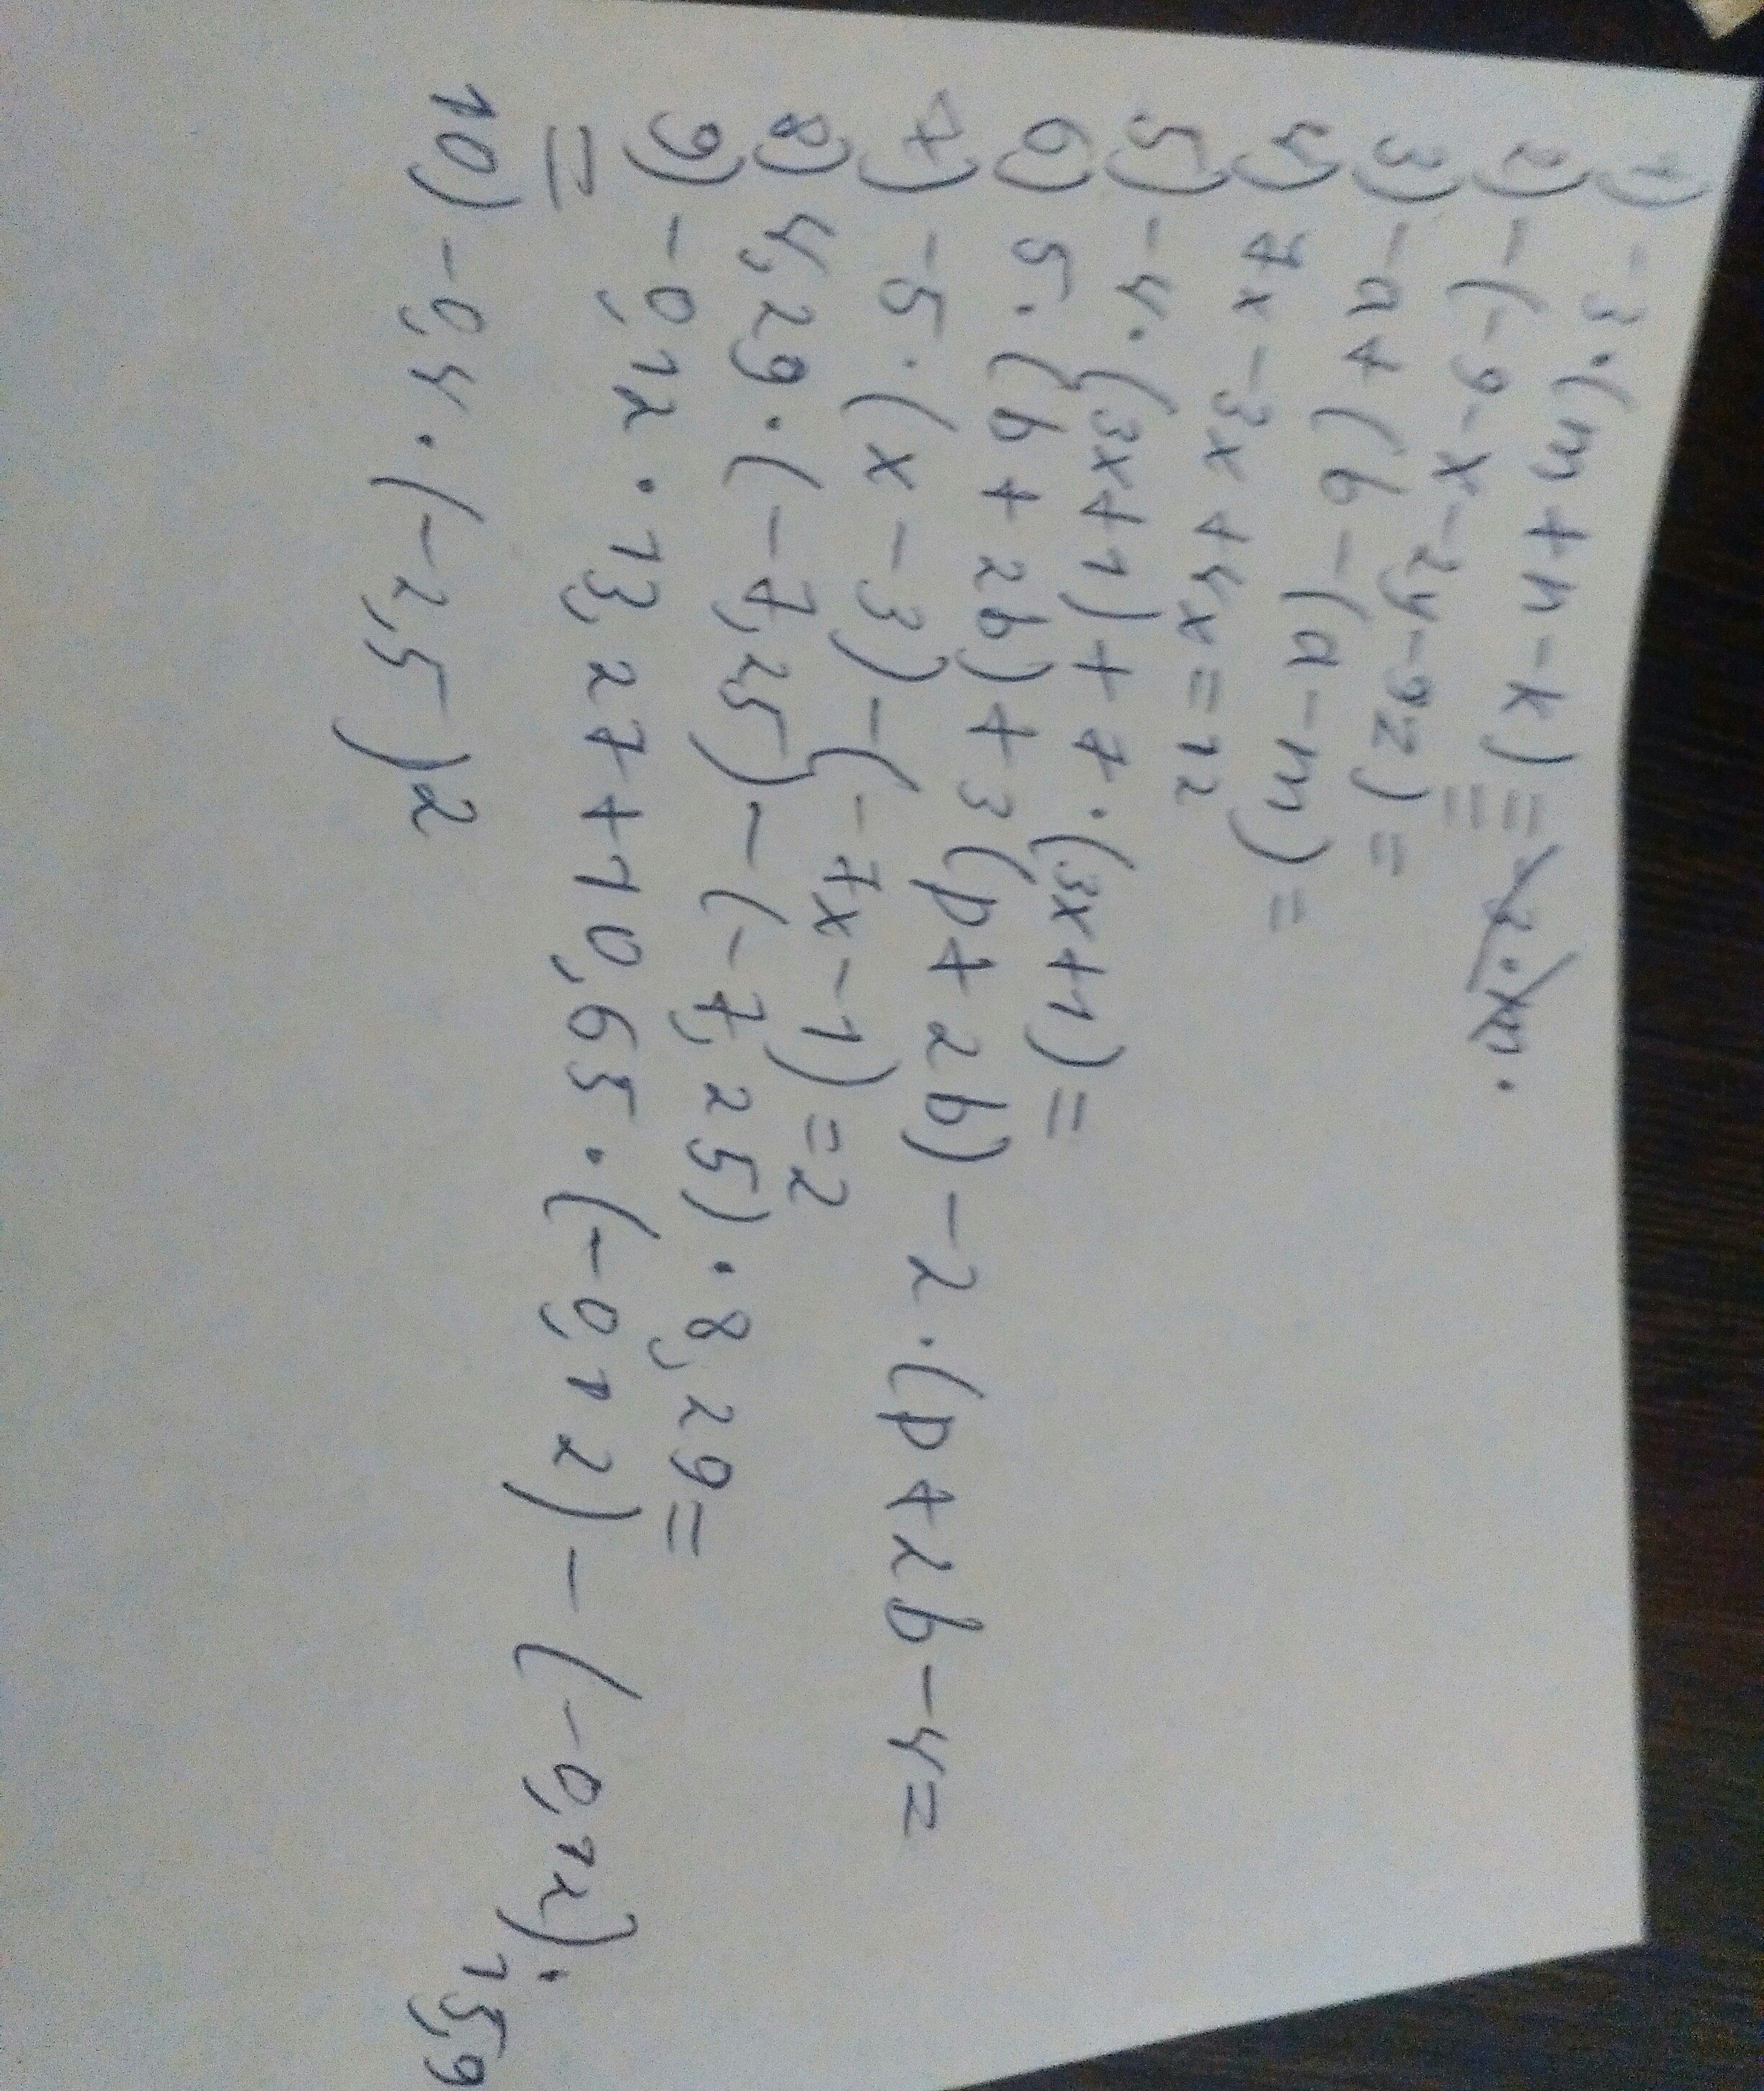 1) -3·(m+n-k)=
2) -(-9-x-2y-9z)=
3) -a+(b-(a-m)=
4) 7x-3x+4x=12
5) -4·(3x+1)+7·(3x+1)=
6) 5·(b+2b)+3(p+2b)-2·(p+2b-4=
7) -5·(x-3)-(-7x-1)=2
8) 4,29·(-7,25)-(-7,25)·8,29=
9) -0,12·13,27+10,65·(-0,12)-(-0,12)·15,9
=
10) -0,4·(-2,5)2